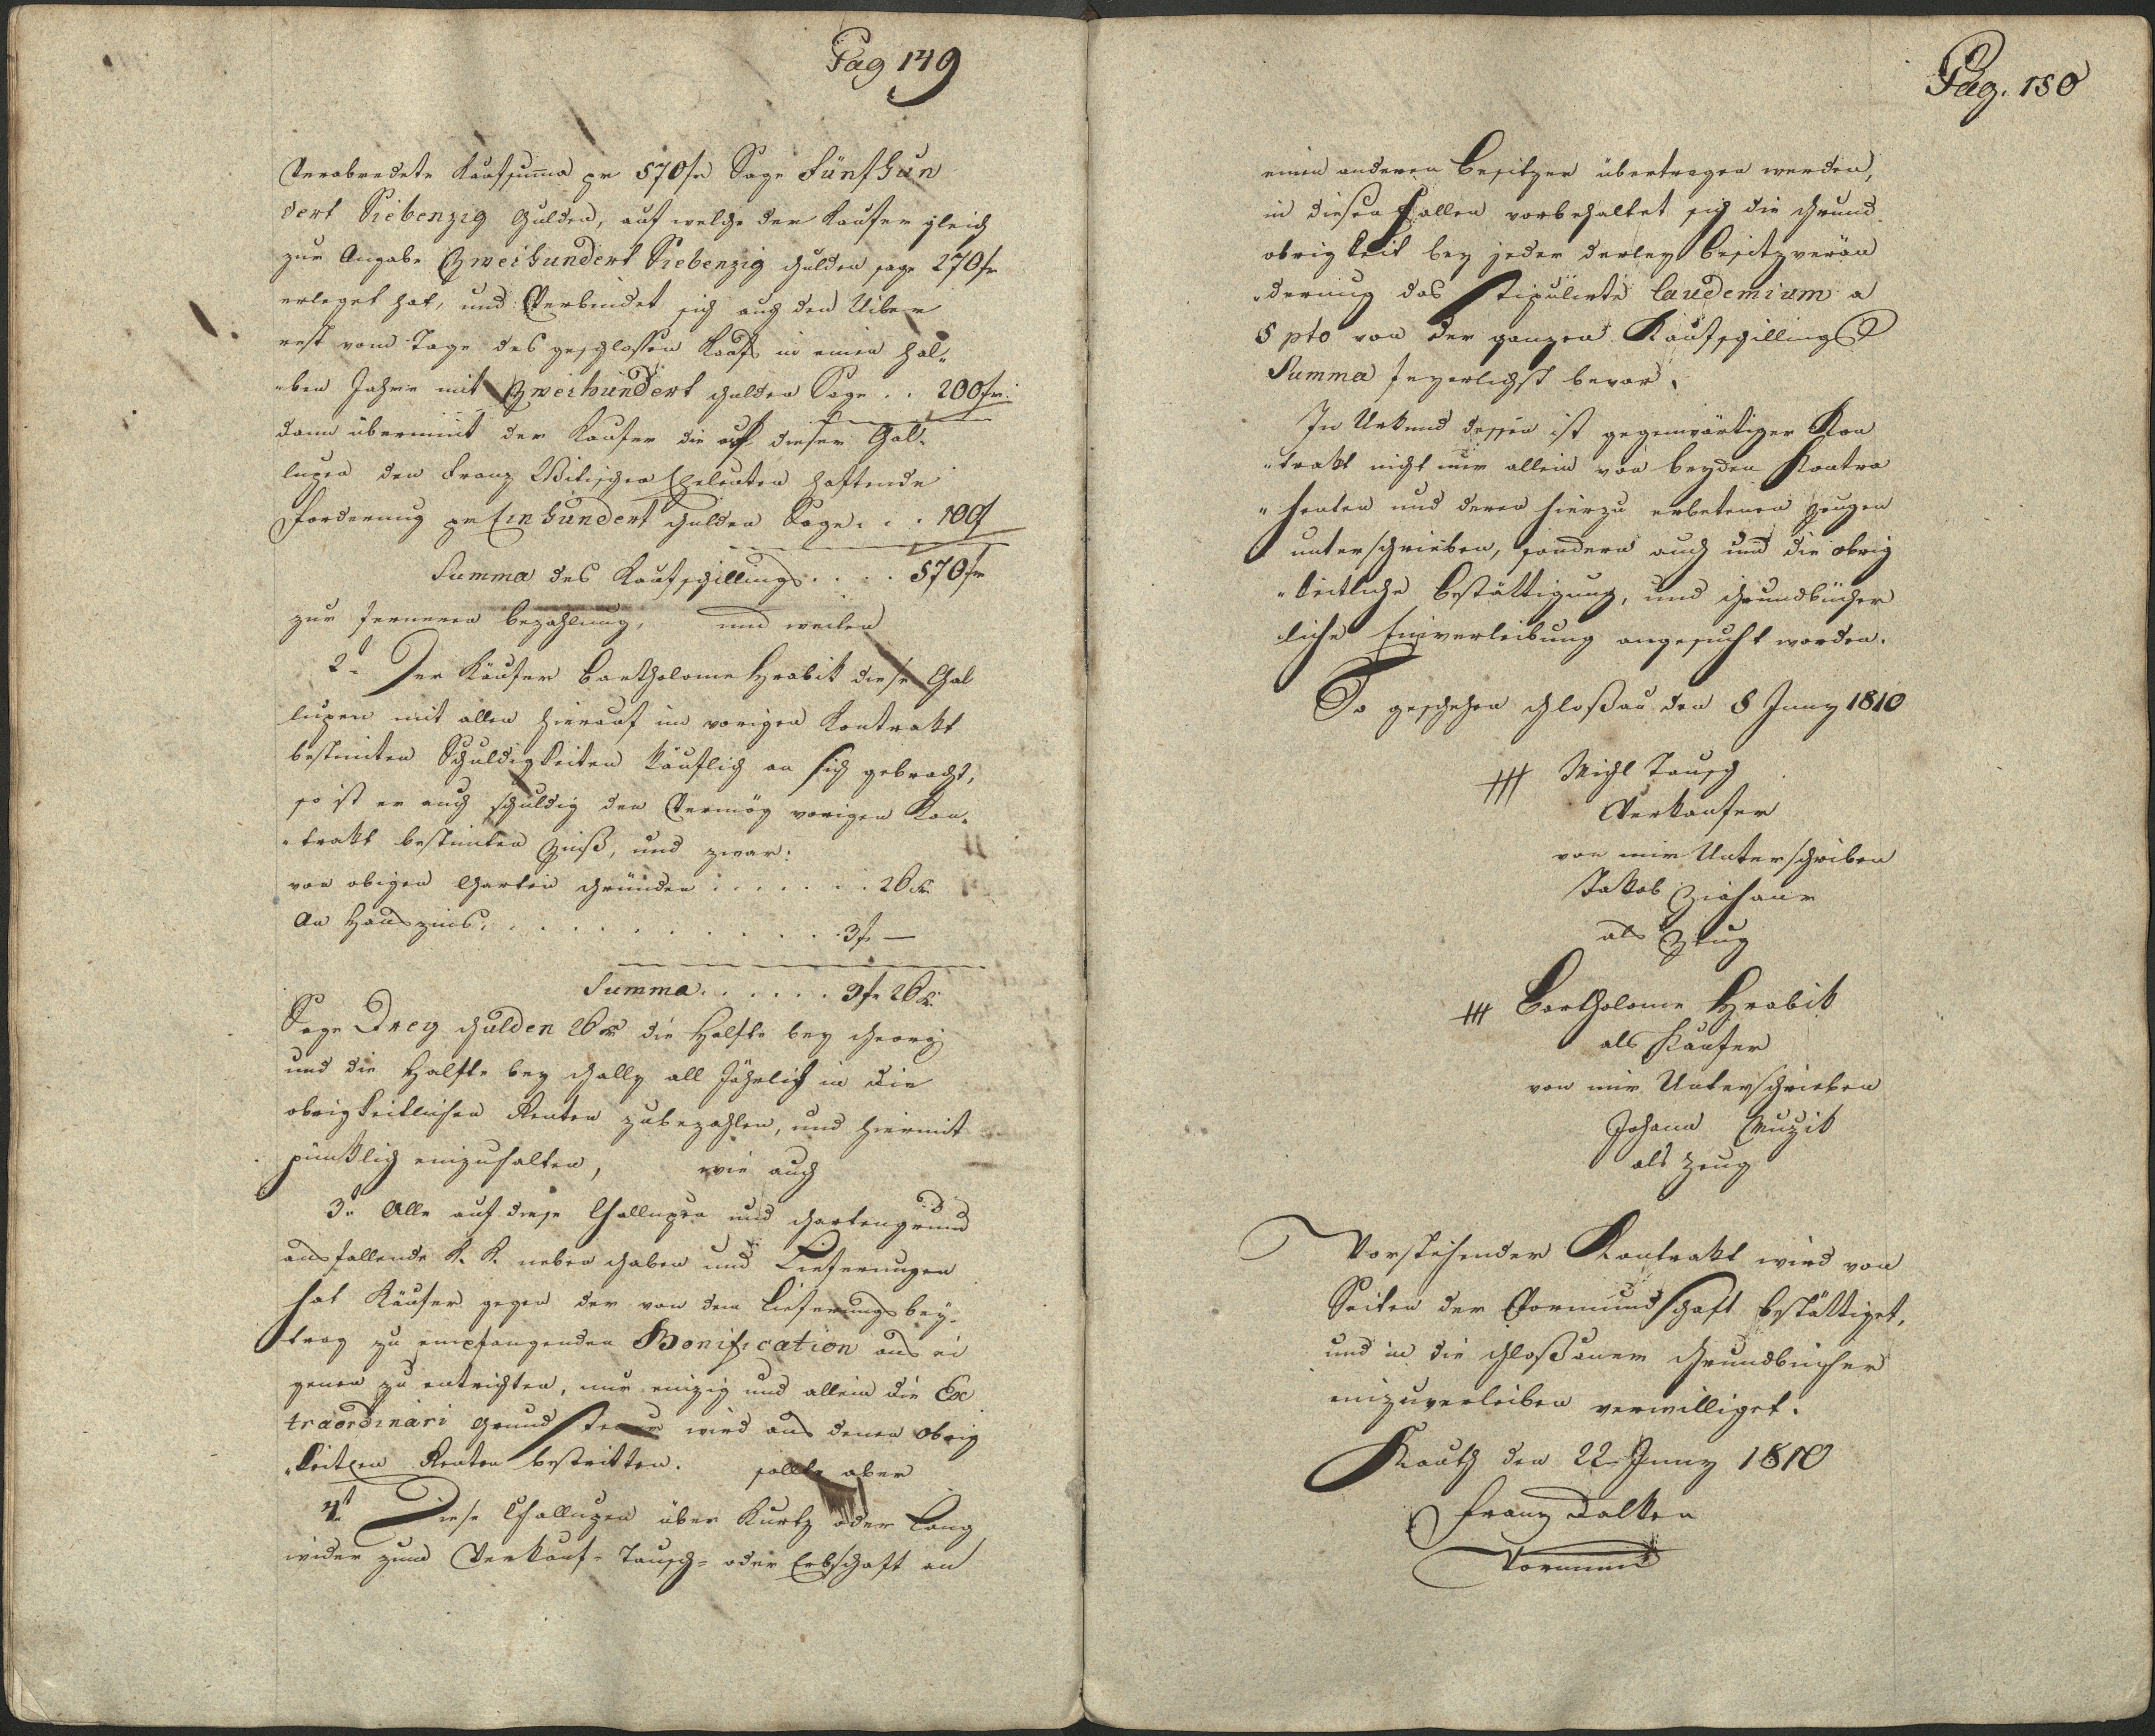 Pag 149
Verabredete Kaufsuma pr 570 fr Sage Fünfhun
dert Siebenzig Gulden, auf welche der Kaufer gleich
zur Angabe Zweihundert Siebenzig Gulden sage 270 fr
erleget hat, und Verbindet sich auch den Uiber
rest vom Tage des geschlossen Kaufs in einen hal„
„ben Jahre mit Zweihundert Gulden Sage . . 200 fr:
dann übernimt der Kaufer die auf dieser Chal„
lupen den Franz Eheleuten haftende
Forderung pr Einhundert Gulden Sage . . . 100 f
Summa des Kaufschillings . . . . 570 fr
zur ferneren bezahlung, und weilen
2t Der Käufer Bartholome Hrabik diese Chal
lupen mit allen hierauf im vorigen Kontrakt
bestimten Schuldigkeiten käuflich an sich gebracht,
so ist er auch schuldig den Vermög vorigen Kon„
„trakt bestimten Zinß, und zwar:
von obigen Garten Gründen . . . . . . . 26 kr
An Hauszins. . . . . . . . . . . . . 3 fr —
Summa . . . . . . 3 fr 26 kr.
Sage Drey Gulden 26 kr die Halfte bey Georgi
und die Halfte bey Gally all Jährlich in die
obrigkeitlichen Renten zubezahlen, und hiermit
pünktlich einzuhalten, wie auch
3t Alle auf diese Challupen und Gartengrund
ausfallende K. K. neben Gaben und Lieferungen
hat Käufer gegen der von dem Lieferungsbey„
trag zu empfangenden Bonification aus ei
genen zu entrichten, nur einzig und allein die Ex
traordinari Grund Steuer wird aus denen Obrig
„keitchen Renten bestritten. sollte aber
4t Diese Challupen über Kurtz oder Lang
wider zum Verkauf- Tausch- oder Erbschaft an
Pag. 150
einen anderen Besitzer übertragen werden,
in diesen Fallen vorbehaltet sich die Grund
obrigkeit bey jeder derley Besitzverän
„derung das Stipulirte Laudemium a
5 pto von der ganzen Kaufschillings
Summa feyerlichst bevor.
In Urkund dessen ist gegenwärtiger Kon
„trakt nicht nur allein von beyden Kontra
„henten und deren hierzu erbetenen Zeugen
unterschrieben, sondern auch umd die obrig
„keitliche Bestättigung, und Grundbücher
liche Einverleibung angesucht worden.
So geschehen Gloßau den 8 Juny 1810
+++ Michl Tausch
Verkaufer
von mir Unterschrieben
Jakob
als Zeug
+++ Bartholome Hrabik
als Käufer
von mir Unterschrieben
Johann Muzik
als Zeug
Vorstehender Kontrakt wird von
Seiten der Vormundschaft bestättiget,
und in die Gloßauer Grundbücher
einzuverleiben verwilliget.
Kauth den 22 Juny 1810
Franz Dalken
Vormund